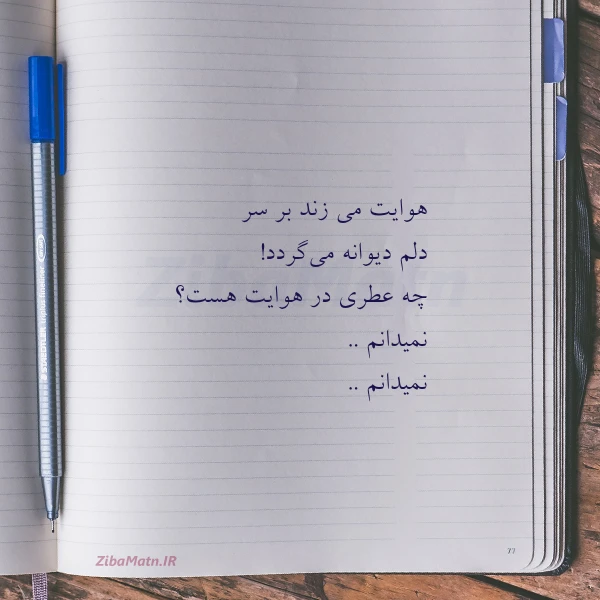 هوایت می زند بر سر
دلم دیوانه می‌گردد!
چه عطری در هوایت هست؟
نمیدانم ..
نمیدانم ..
ZibaMatn.IR